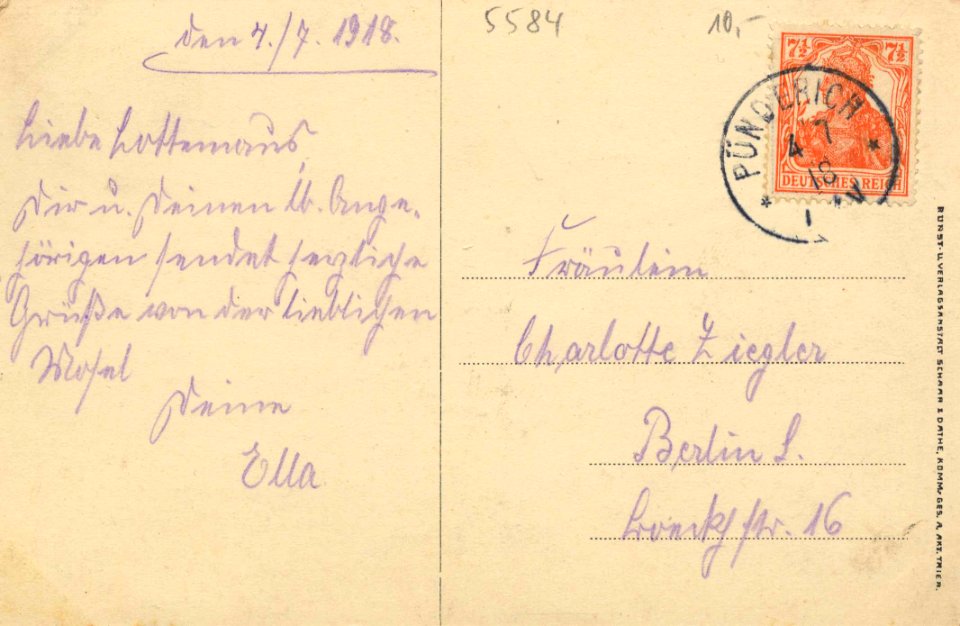 den 4./7. 1918.
Liebe Lottemaus,
Dir u. Deinen lb. Ange-
hörigen sendet herzliche
Grüße von der lieblichen
Mosel
Deine
Ella
5584
10,-
7½ 7½
DEUTSCHES REICH
PÜNDERICH
4 7
18
Fräulein
Charlotte Ziegler
Berlin S.
str. 16
KUNST- U. VERLAGSANSTALT SCHAAR & DATHE, KOMM.-GES. A. AKT. TRIER.